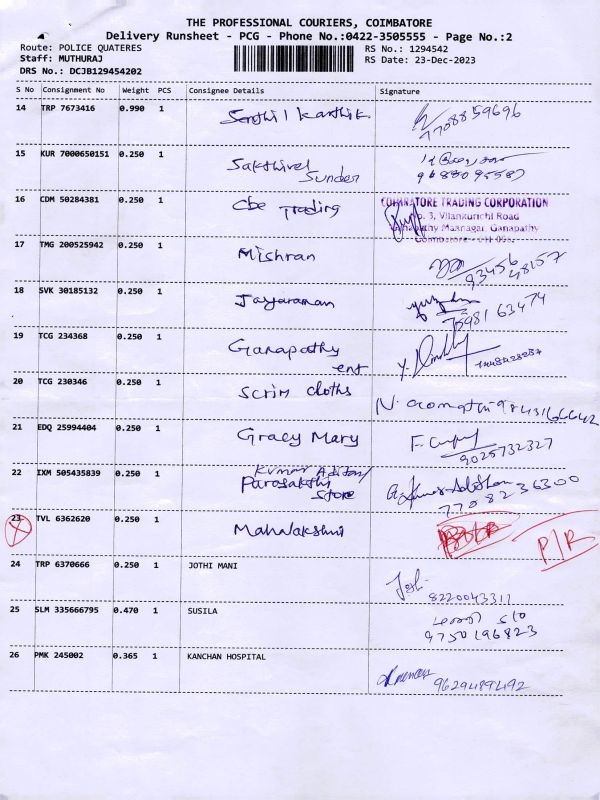 THE PROFESSIONAL COURIERS, COIMBATORE
Delivery Runsheet - PCG - Phone No.:0422-3505555 - Page No.:2
Route: POLICE QUATERES RS No.: 1294542
Staff: MUTHURAJ RS Date: 23-Dec-2023
DRS No.: DCJB129454202
S No Consignment No Weight PCS Consignee Details Signature
14 TRP 7673416 0.990 1 Senthil Karthik
7708859696
15 KUR 7000650151 0.250 1 Sakthivel
Sunder
16 CDM 50284381 0.250 1 Cbe Trading COIMBATORE TRADING CORPORATION
3, Vilankurichi Road
Maanagar, Ganapathy
17 TMG 200525942 0.250 1 Mishran
93456
48157
18 SVK 30185132 0.250 1 Jayaraman
7598163474
19 TCG 234368 0.250 1 Ganapathy
ent
20 TCG 230346 0.250 1 Scrim cloths
N. Gomathi 9843166642
21 EDQ 25994404 0.250 1 Gracy Mary
9025732327
22 IXM 505435839 0.250 1 Kumar
Parasakthi
Store
7708236300
23 TVL 6362620 0.250 1 Mahalakshmi P/R
24 TRP 6370666 0.250 1 JOTHI MANI
8220043311
25 SLM 335666795 0.470 1 SUSILA
9750196823
26 PMK 245002 0.365 1 KANCHAN HOSPITAL
9629489492